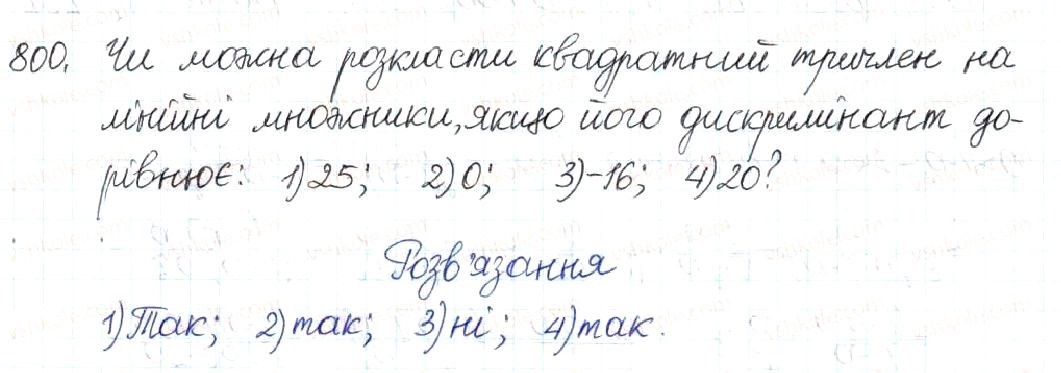 800. Чи можна розкласти квадратний тричлен на
лінійні множники, якщо його дискримінант до-
рівнює: 1) 25; 2) 0; 3) -16; 4) 20?
Розв'язання
1) Так; 2) так; 3) ні; 4) так.